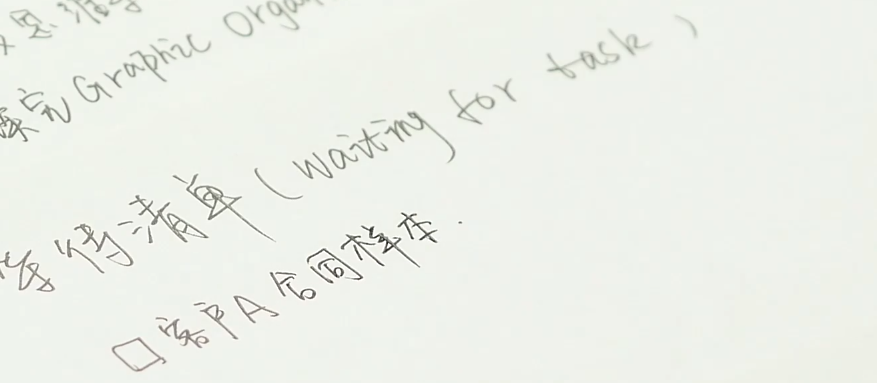 思维导
探究Graphic Orga
等待清单(Waiting for task)
口客户A合同样本.